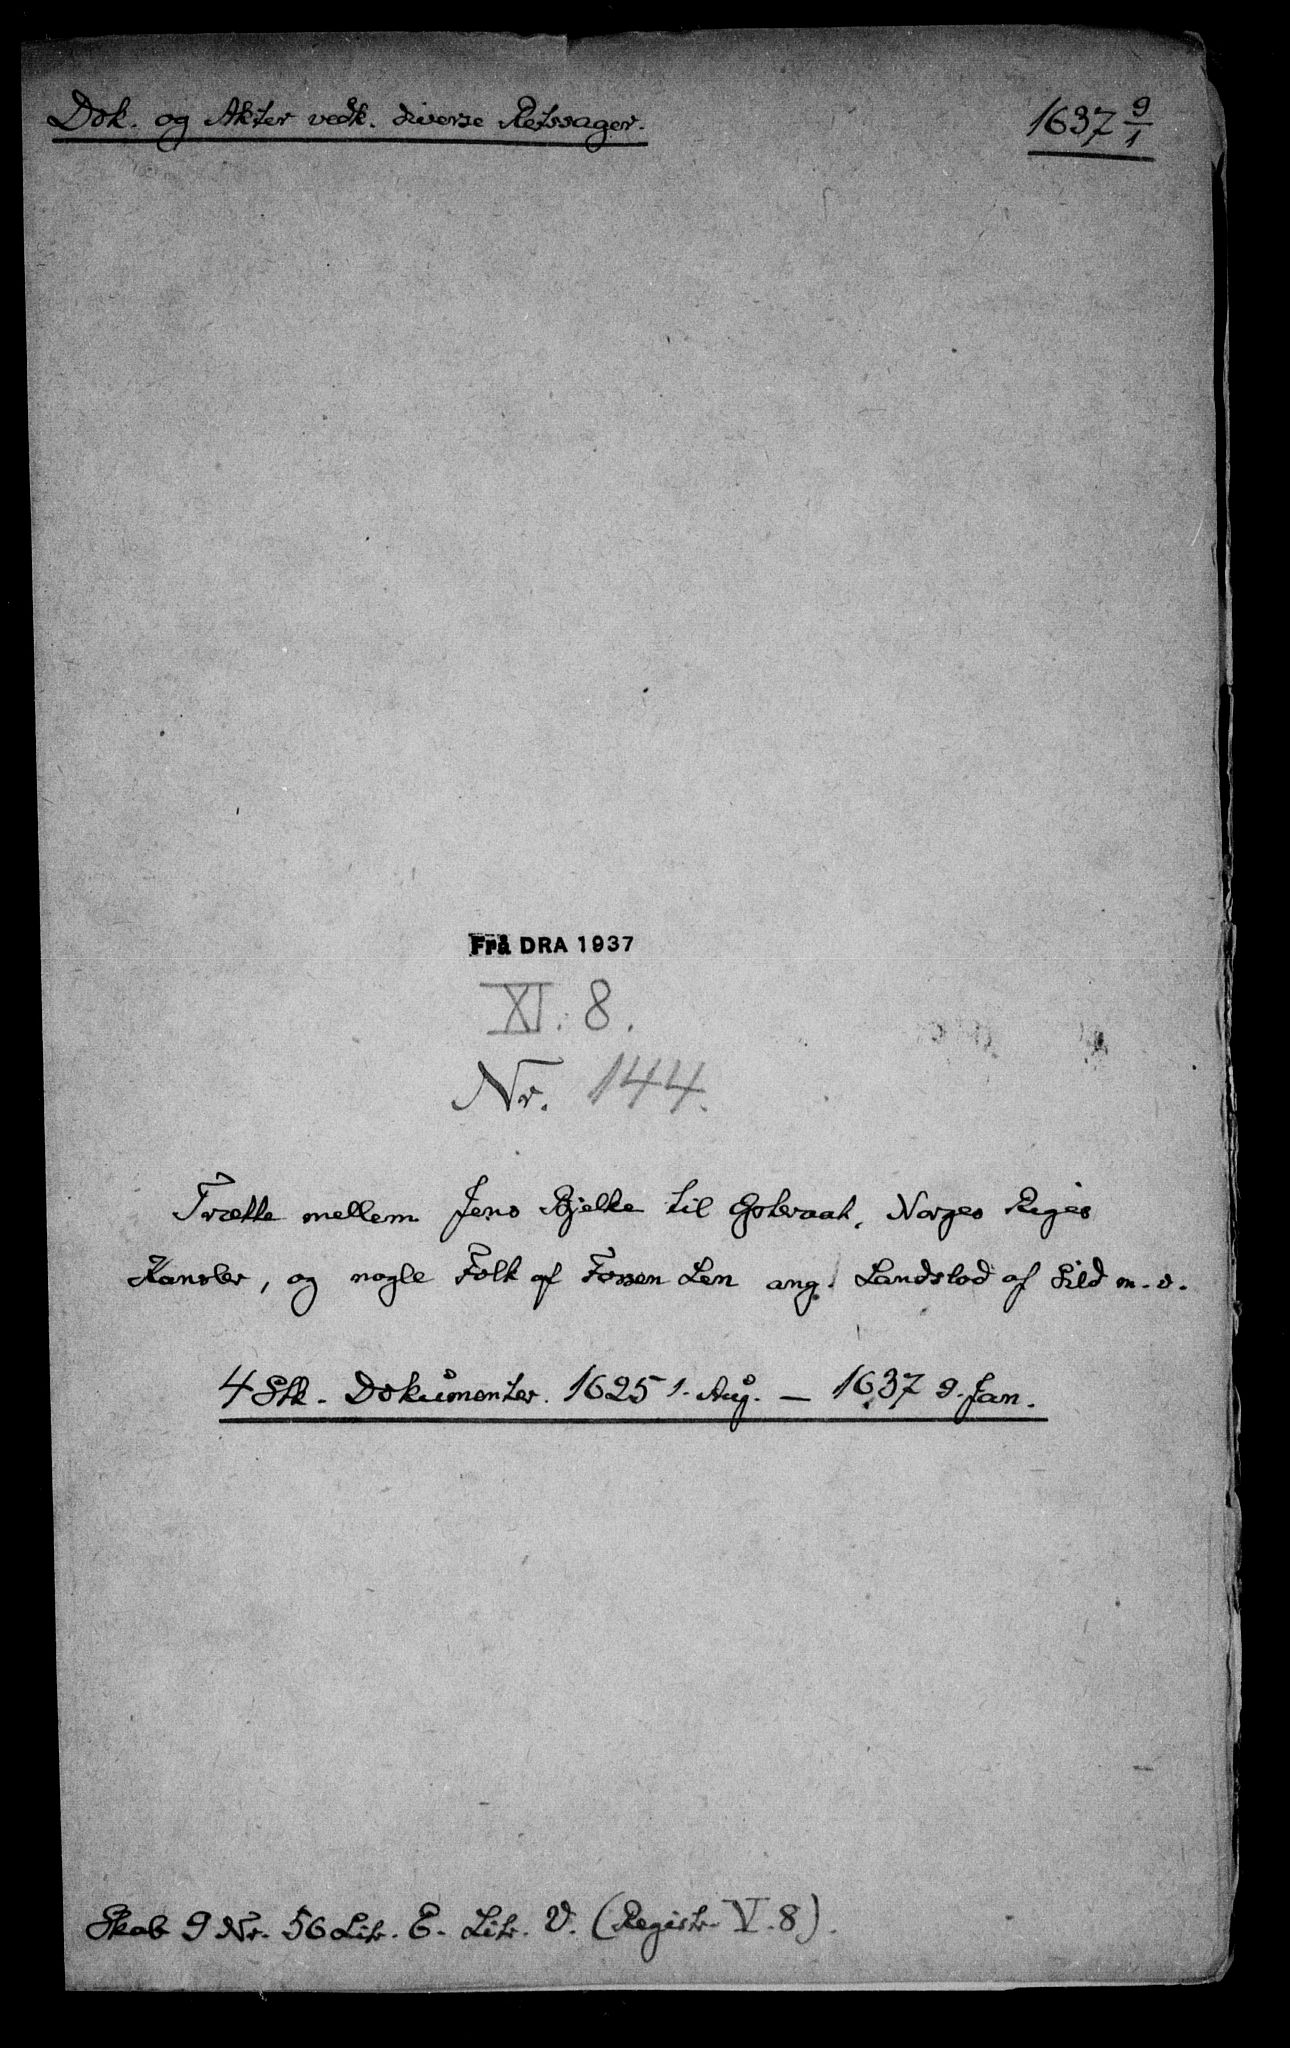 Dok. og Akter vedk. diverse Retssager.
1637 9/1
Frå DRA 1937
XI. 8.
Nr. 144.
Trætte mellem Jens Bjelke til Østeraat, Norges Riges
Kansler, og nogle Folk af Fossen Len ang. Landslod af Sild m.v.
4 Stk. Dokumenter. 1625 1. Aug. — 1637 9. Jan.
Skab 9 Nr. 56 Litr. E. Litr. V. (Registr. V. 8).